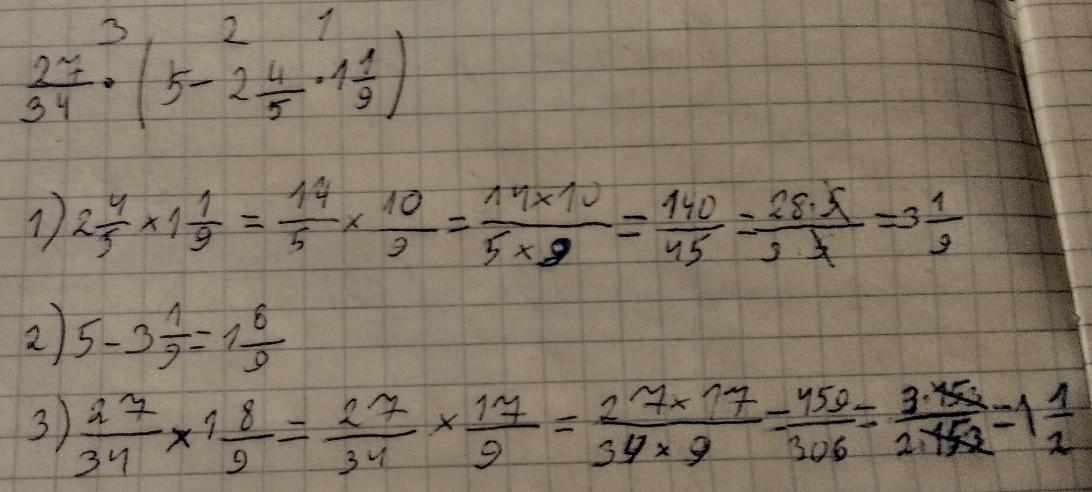 3 2 1
27/34 · (5 - 2 4/5 · 1 1/9)
1) 2 4/5 × 1 1/9 = 14/5 × 10/9 = 14×10/5×9 = 140/45 = 28·5/9·5 = 3 1/9
2) 5 - 3 1/9 = 1 8/9
3) 27/34 × 1 8/9 = 27/34 × 17/9 = 27×17/34×9 = 459/306 = 3·153/2·153 = 1 1/2